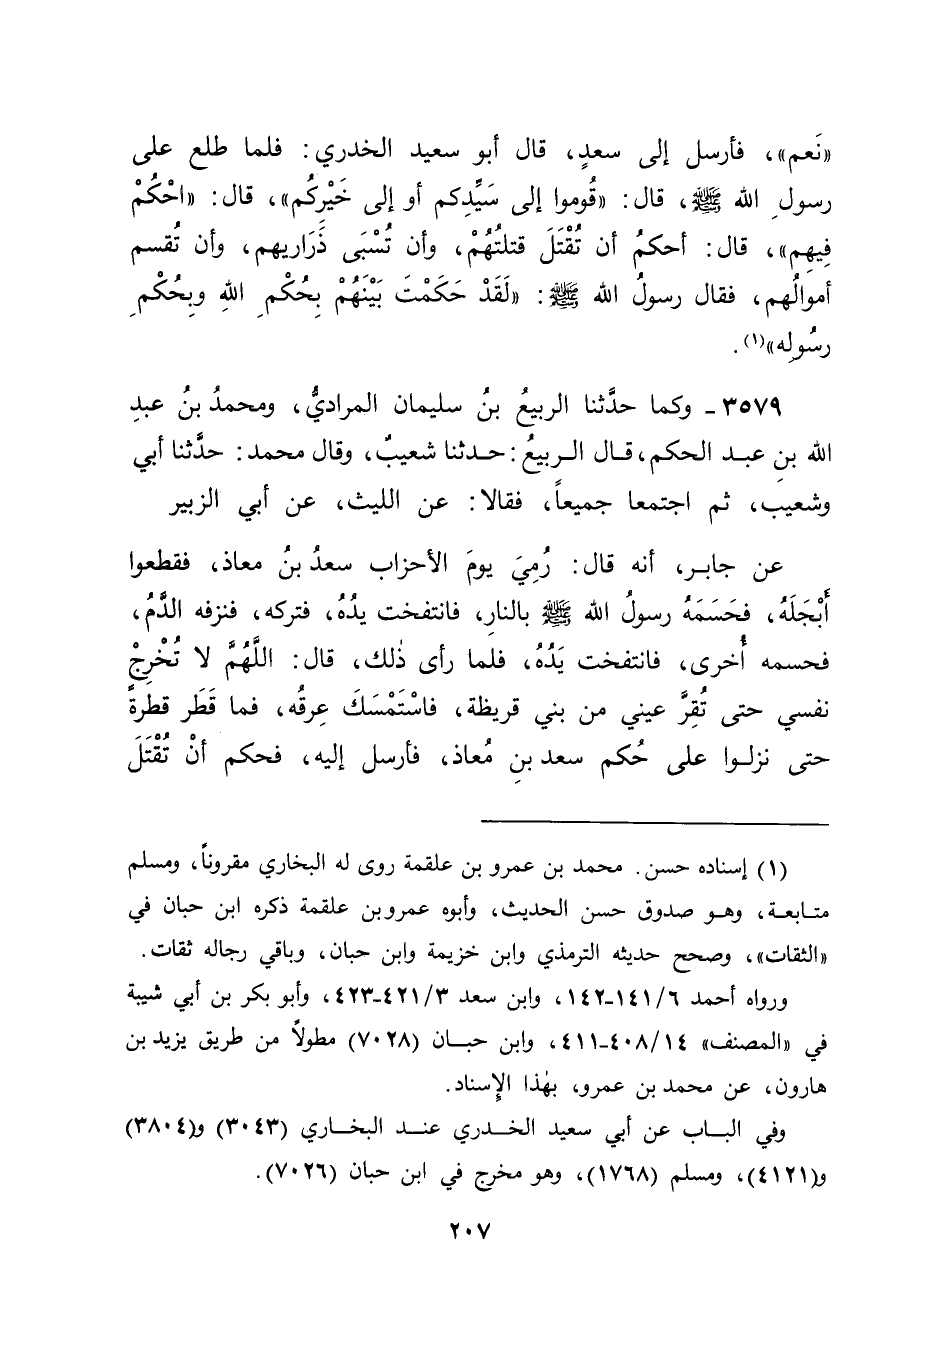 «نَعم»، فأرسل إلى سعدٍ، قال أبو سعيد الخدري: فلما طلع على
رسولِ الله ﷺ، قال: «قُوموا إلى سَيِّدِكم أو إلى خَيْرِكُم»، قال: «احْكُمْ
فِيهم»، قال: أحكمُ أن تُقْتَلَ قتلتُهُمْ، وأن تُسْبَى ذَراريهم، وأن تُقسم
أموالُهم، فقال رسولُ الله ﷺ: «لَقَدْ حَكَمْتَ بَيْنَهُمْ بِحُكْمِ اللهِ وبِحُكْمِ
رسُولِه»(١).
٣٥٧٩ - وكما حدَّثنا الربيعُ بنُ سليمان المراديُّ، ومحمدُ بنُ عبدِ
الله بن عبد الحكم، قال الربيعُ: حدثنا شعيبٌ، وقال محمد: حدَّثنا أبي
وشعيب، ثم اجتمعا جميعاً، فقالا: عن الليث، عن أبي الزبير
عن جابر، أنه قال: رُمِيَ يومَ الأحزاب سعدُ بنُ معاذ، فقطعوا
أَبْجَلَهُ، فَحَسَمَهُ رسولُ الله ﷺ بالنارِ، فانتفخت يدُهُ، فتركه، فنزفه الدَّمُ،
فحسمه أُخرى، فانتفخت يَدُهُ، فلما رأى ذٰلك، قال: اللَّهُمَّ لا تُخْرِجْ
نفسي حتى تُقِرَّ عيني من بني قريظة، فاسْتَمْسَكَ عِرقُه، فما قَطَر قطرةً
حتى نزلوا على حُكم سعد بنِ مُعاذ، فأرسل إليه، فحكم أنْ تُقْتَلَ
(١) إسناده حسن. محمد بن عمرو بن علقمة روى له البخاري مقروناً، ومسلم
متابعة، وهو صدوق حسن الحديث، وأبوه عمرو بن علقمة ذكره ابن حبان في
«الثقات»، وصحح حديثه الترمذي وابن خزيمة وابن حبان، وباقي رجاله ثقات.
ورواه أحمد ١٤١/٦-١٤٢، وابن سعد ٤٢١/٣-٤٢٣، وأبو بكر بن أبي شيبة
في «المصنف» ٤٠٨/١٤-٤١١، وابن حبان (٧٠٢٨) مطولاً من طريق يزيد بن
هارون، عن محمد بن عمرو، بهٰذا الإِسناد.
وفي الباب عن أبي سعيد الخدري عند البخاري (٣٠٤٣) و(٣٨٠٤)
و(٤١٢١)، ومسلم (١٧٦٨)، وهو مخرج في ابن حبان (٧٠٢٦).
٢٠٧